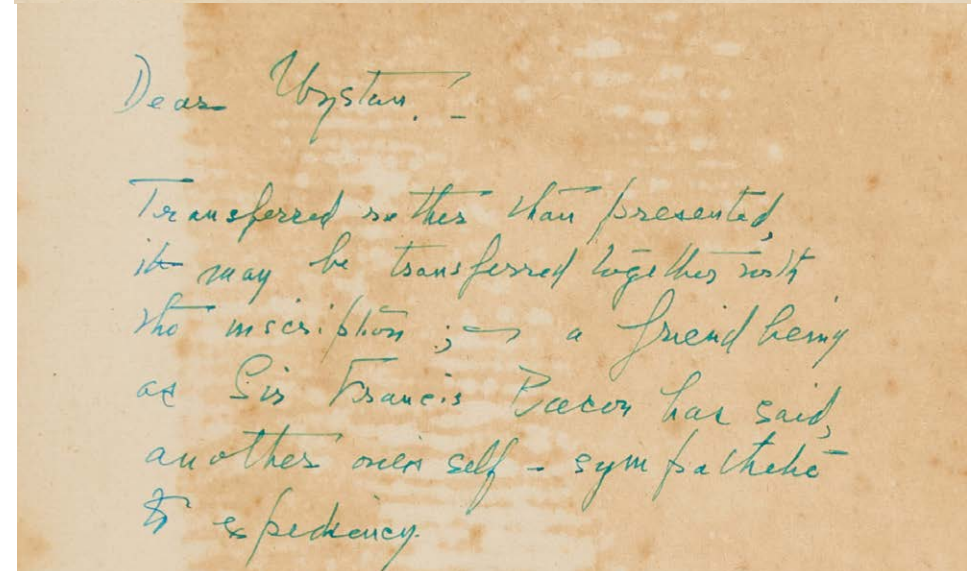 Dear Wystan: –
Transferred rather than presented,
it may be transferred together with
the inscription; – a friend being
as Sir Francis Bacon has said,
another ones self – sympathetic
to expediency.